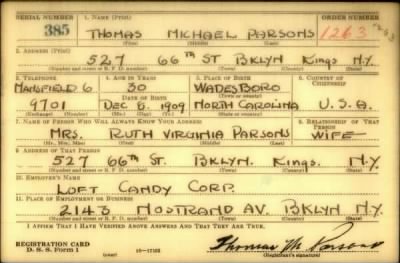 SERIAL NUMBER 1. NAME (Print) ORDER NUMBER
385 THOMAS MICHAEL PARSONS 1263
(First) (Middle) (Last)
2. ADDRESS (Print)
527 66TH ST BKLYN KINGS N.Y.
(Number and street or R. F. D. number) (Town) (County) (State)
3. TELEPHONE 4. AGE IN YEARS 5. PLACE OF BIRTH 6. COUNTRY OF CITIZENSHIP
MANSFIELD 6 30 WADESBORO
DATE OF BIRTH
9701 DEC 8, 1909 NORTH CAROLINA U.S.A.
(Exchange) (Number) (Mo.) (Day) (Yr.) (State or country)
7. NAME OF PERSON WHO WILL ALWAYS KNOW YOUR ADDRESS 8. RELATIONSHIP OF THAT PERSON
MRS. RUTH VIRGINIA PARSONS WIFE
(Mr., Mrs., Miss) (First) (Middle) (Last)
9. ADDRESS OF THAT PERSON
527 66TH ST. BKLYN. KINGS. N.Y.
(Number and street or R. F. D. number) (Town) (County) (State)
10. EMPLOYER'S NAME
LOFT CANDY CORP.
11. PLACE OF EMPLOYMENT OR BUSINESS
2143 NOSTRAND AV. BKLYN N.Y.
(Number and street or R. F. D. number) (Town) (County) (State)
I AFFIRM THAT I HAVE VERIFIED ABOVE ANSWERS AND THAT THEY ARE TRUE.
REGISTRATION CARD
D. S. S. Form 1 (over) 16-17105 Thomas M. Parsons
(Registrant's signature)